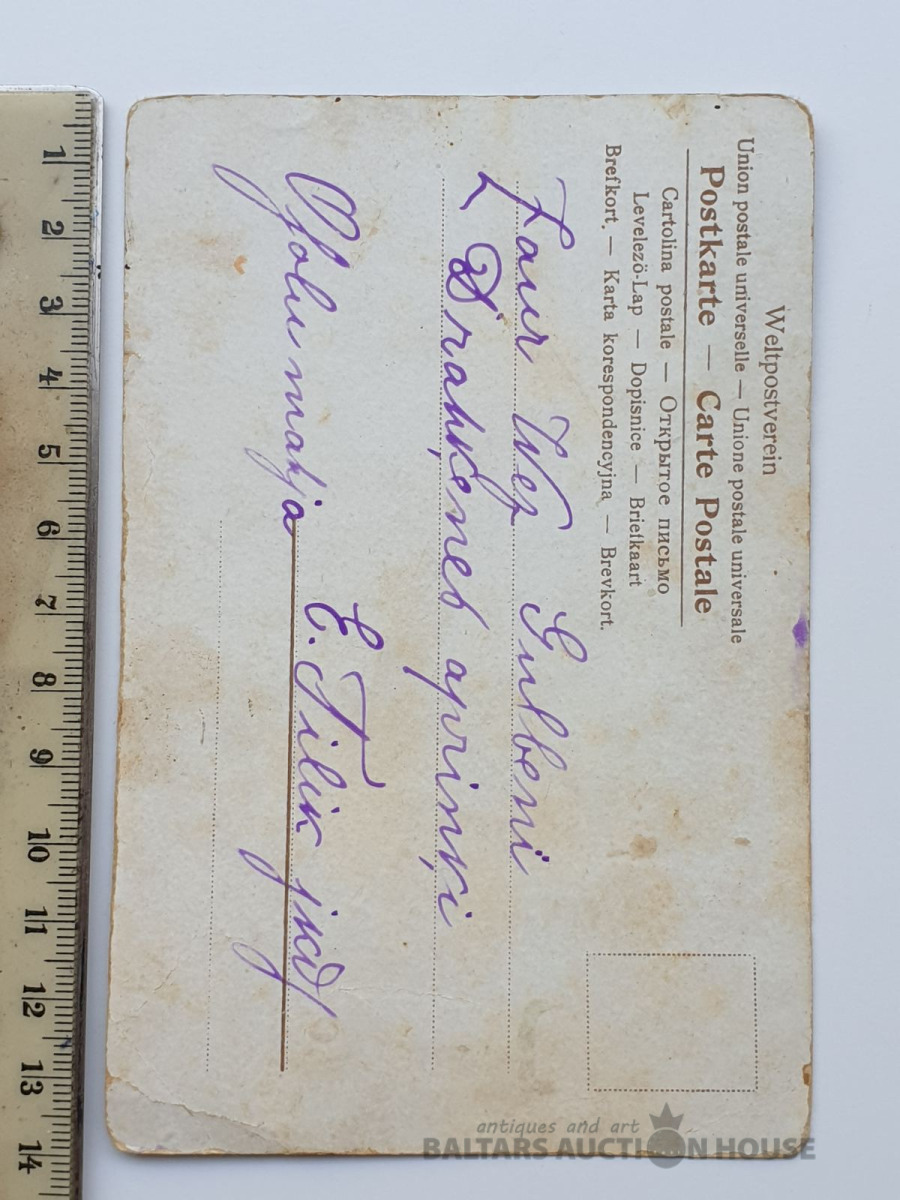 Weltpostverein
Union postale universelle — Unione postale universale
Postkarte — Carte Postale
Cartolina postale — Открытое письмо
Levelezö-Lap — Dopisnice — Briefkaart
Brefkort. — Karta korespondencyjna — Brevkort.
Zaur Wez Gulbeni
apriņķi
mahja
E.
1 2 3 4 5 6 7 8 9 10 11 12 13 14
antiques and art
BALTARS AUCTION HOUSE